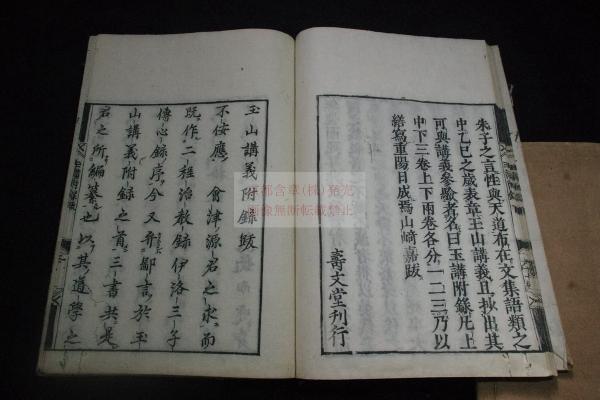 朱子之言性與天道布在文集語類之
中乙巳之歳表章玉山講義且抄出其
可與講義參驗者名曰玉講附錄凡上
中下三卷上下兩卷各分一二三乃以
繕寫重陽日成焉山崎嘉跋
壽文堂刊行
玉山講義附錄跋
不佞應會津源君之求而
既作二程治教錄伊洛三子
傳心錄序今又弁鄙言於玉
山講義附錄之首三書共是
君之所編纂也以其道學之
京都含章(株)発売
画像無断転載禁止